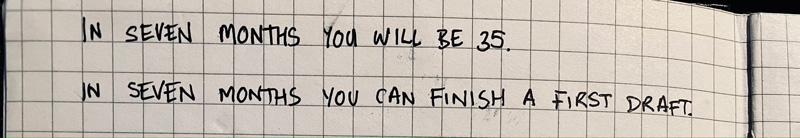 IN SEVEN MONTHS YOU WILL BE 35.
IN SEVEN MONTHS YOU CAN FINISH A FIRST DRAFT.